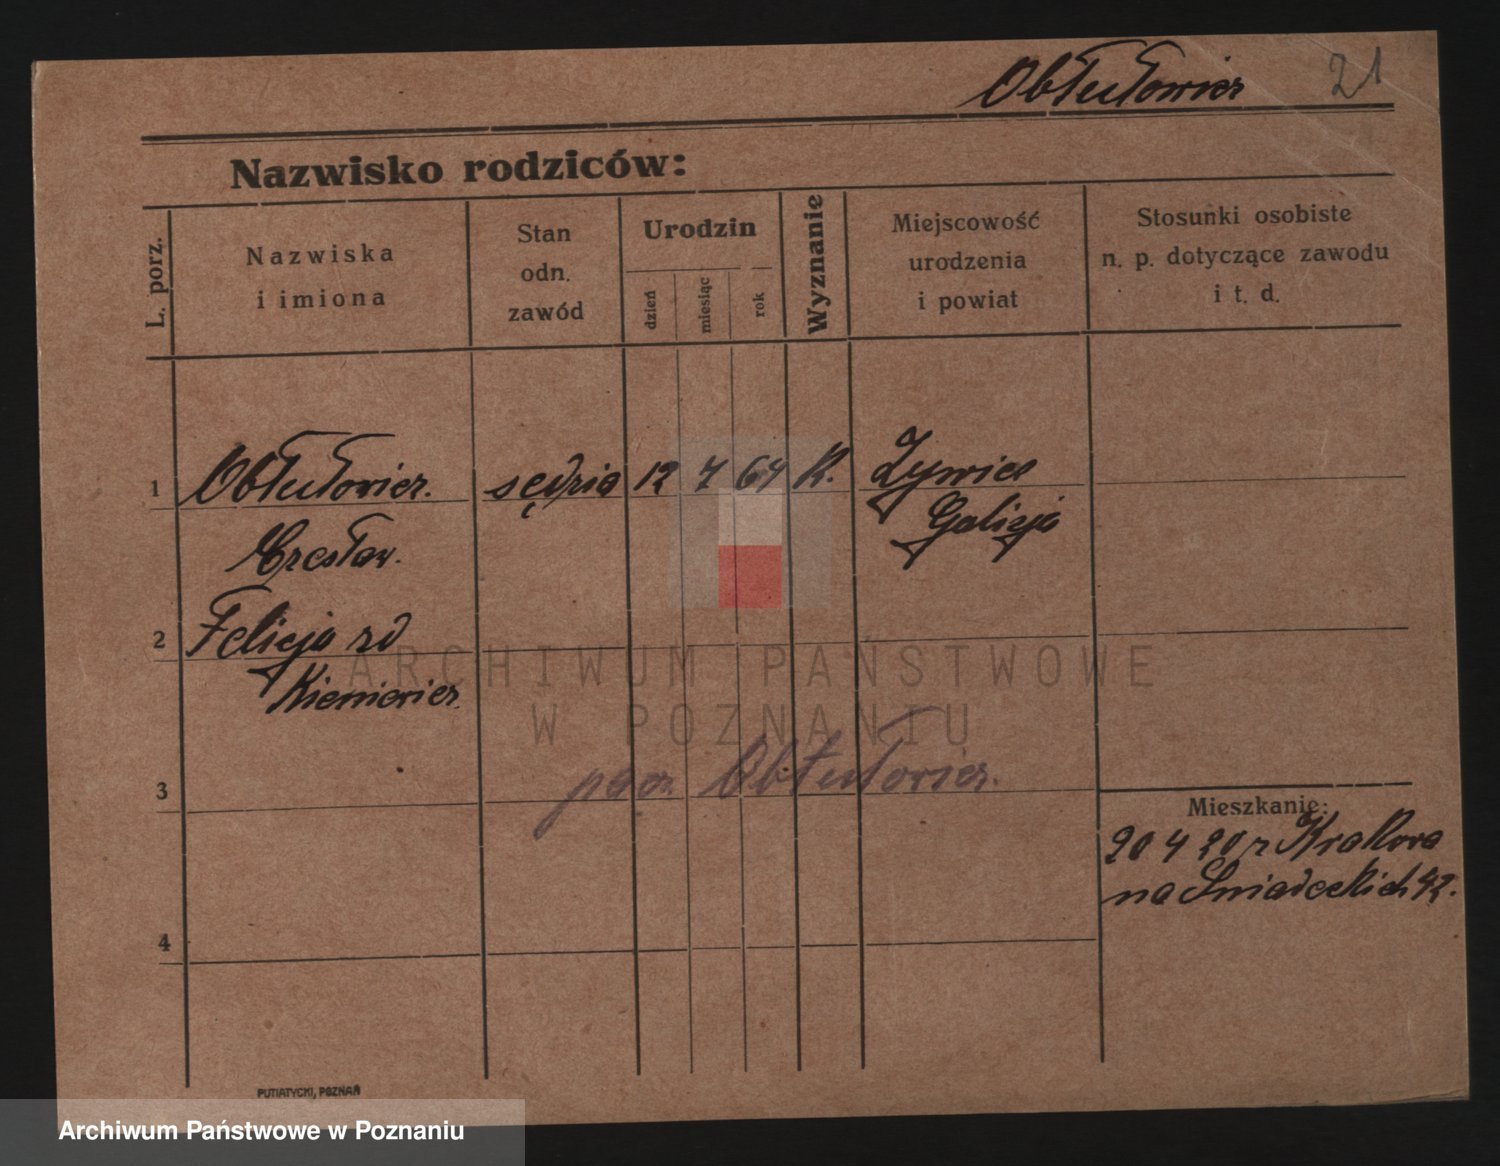 Obłułowicz 21
Nazwisko rodziców:
L. porz.
Nazwiska
i imiona
Stan
odn.
zawód
Urodzin
dzień
miesiąc
rok
Wyznanie
Miejscowość
urodzenia
i powiat
Stosunki osobiste
n. p. dotyczące zawodu
i t. d.
1 Obłułowicz. sędzia 12 7 64 K. Żywiec
Galicja
Czesław.
2 Felicja zd
Kieniewicz
ARCHIWUM PAŃSTWOWE
W POZNANIU
Obłułowicz.
3
Mieszkanie:
20 4 20 z Krakowa
na Śniadeckich 42.
4
PUTIATYCKI, POZNAŃ
Archiwum Państwowe w Poznaniu